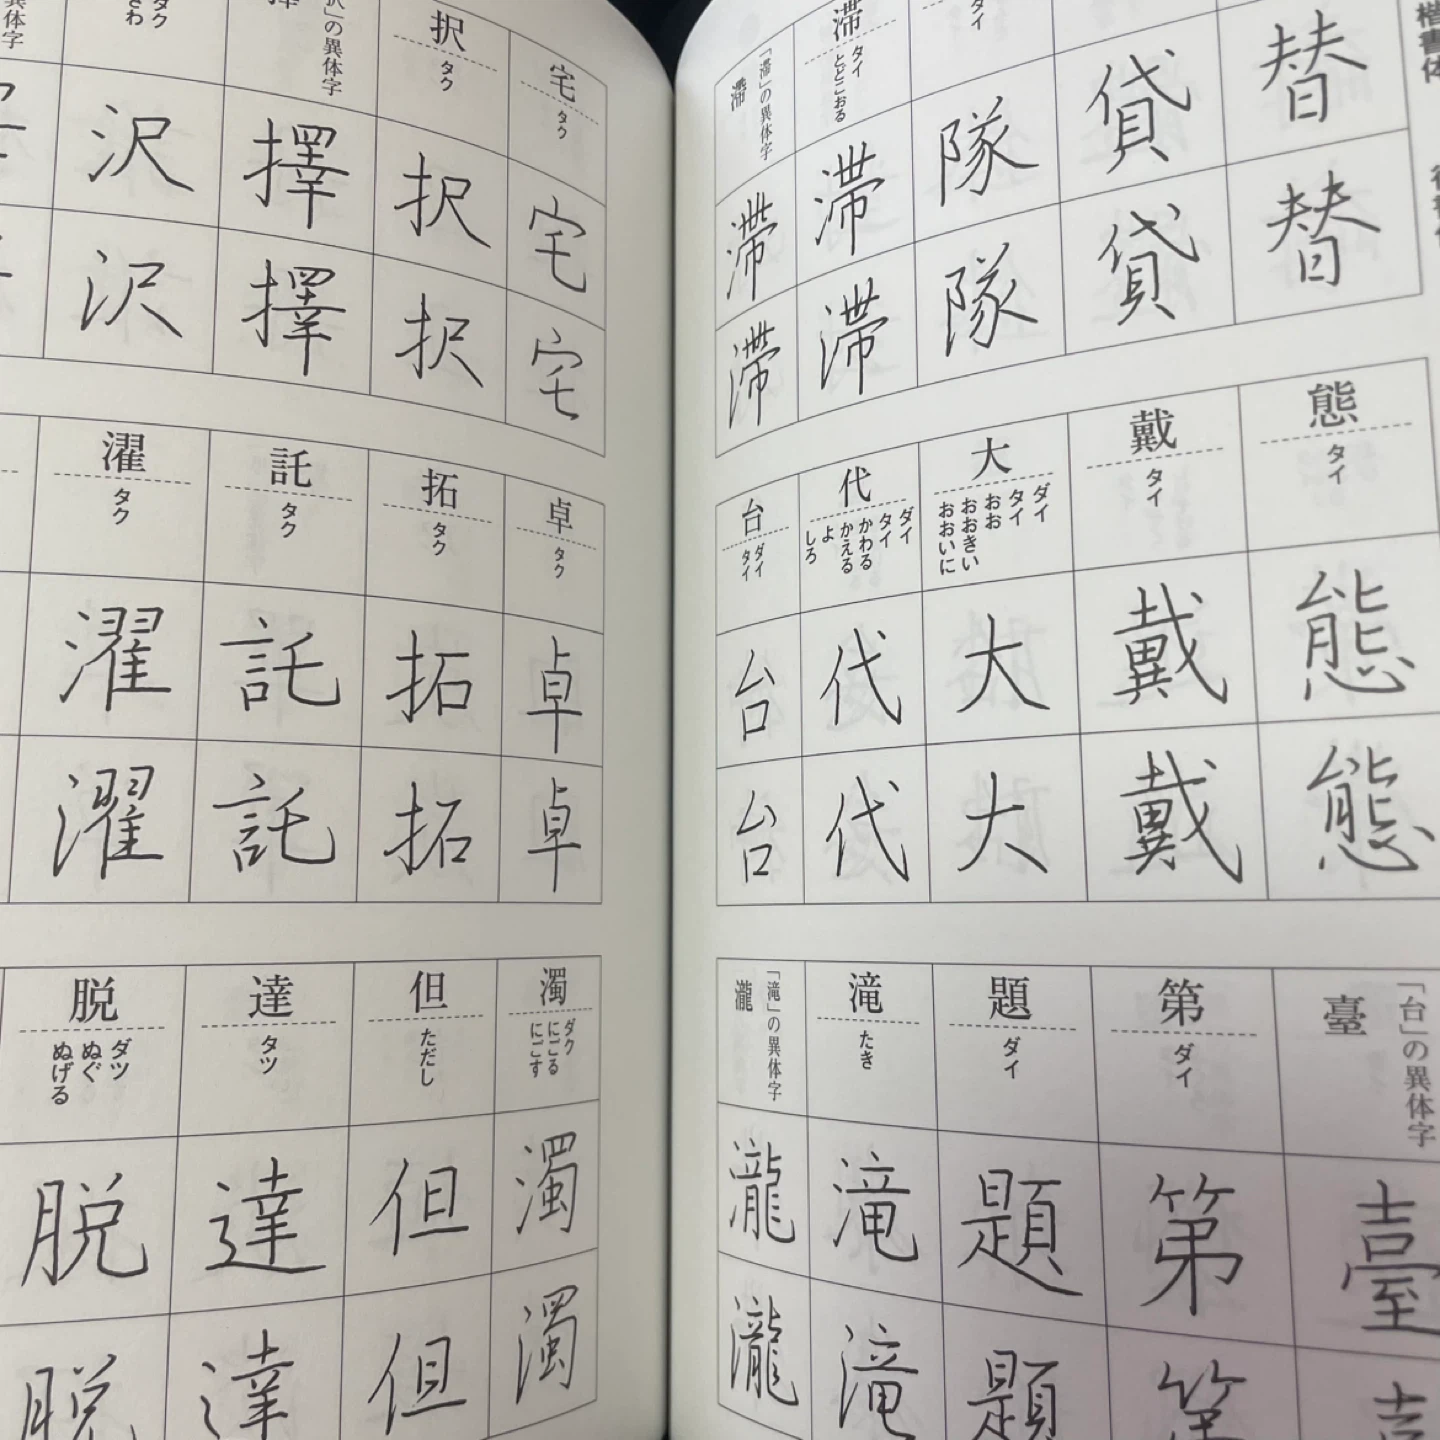 楷書体
替
替
貸
貸
タイ
隊
隊
滞
タイ
とどこおる
滞
滞
「滞」の異体字
滯
滯
滯
態
タイ
態
態
戴
タイ
戴
戴
大
ダイ
タイ
おお
おおきい
おおいに
大
大
代
ダイ
タイ
かわる
かえる
よ
しろ
代
代
台
ダイ
タイ
台
台
「台」の異体字
臺
臺
第
ダイ
第
第
題
ダイ
題
題
滝
たき
滝
滝
「滝」の異体字
瀧
瀧
瀧
宅
タク
宅
宅
択
タク
択
択
「択」の異体字
擇
擇
擇
タク
さわ
沢
沢
異体字
卓
タク
卓
卓
拓
タク
拓
拓
託
タク
託
託
濯
タク
濯
濯
濁
ダク
にごる
にごす
濁
濁
但
ただし
但
但
達
タツ
達
達
脱
ダツ
ぬぐ
ぬげる
脱
脱